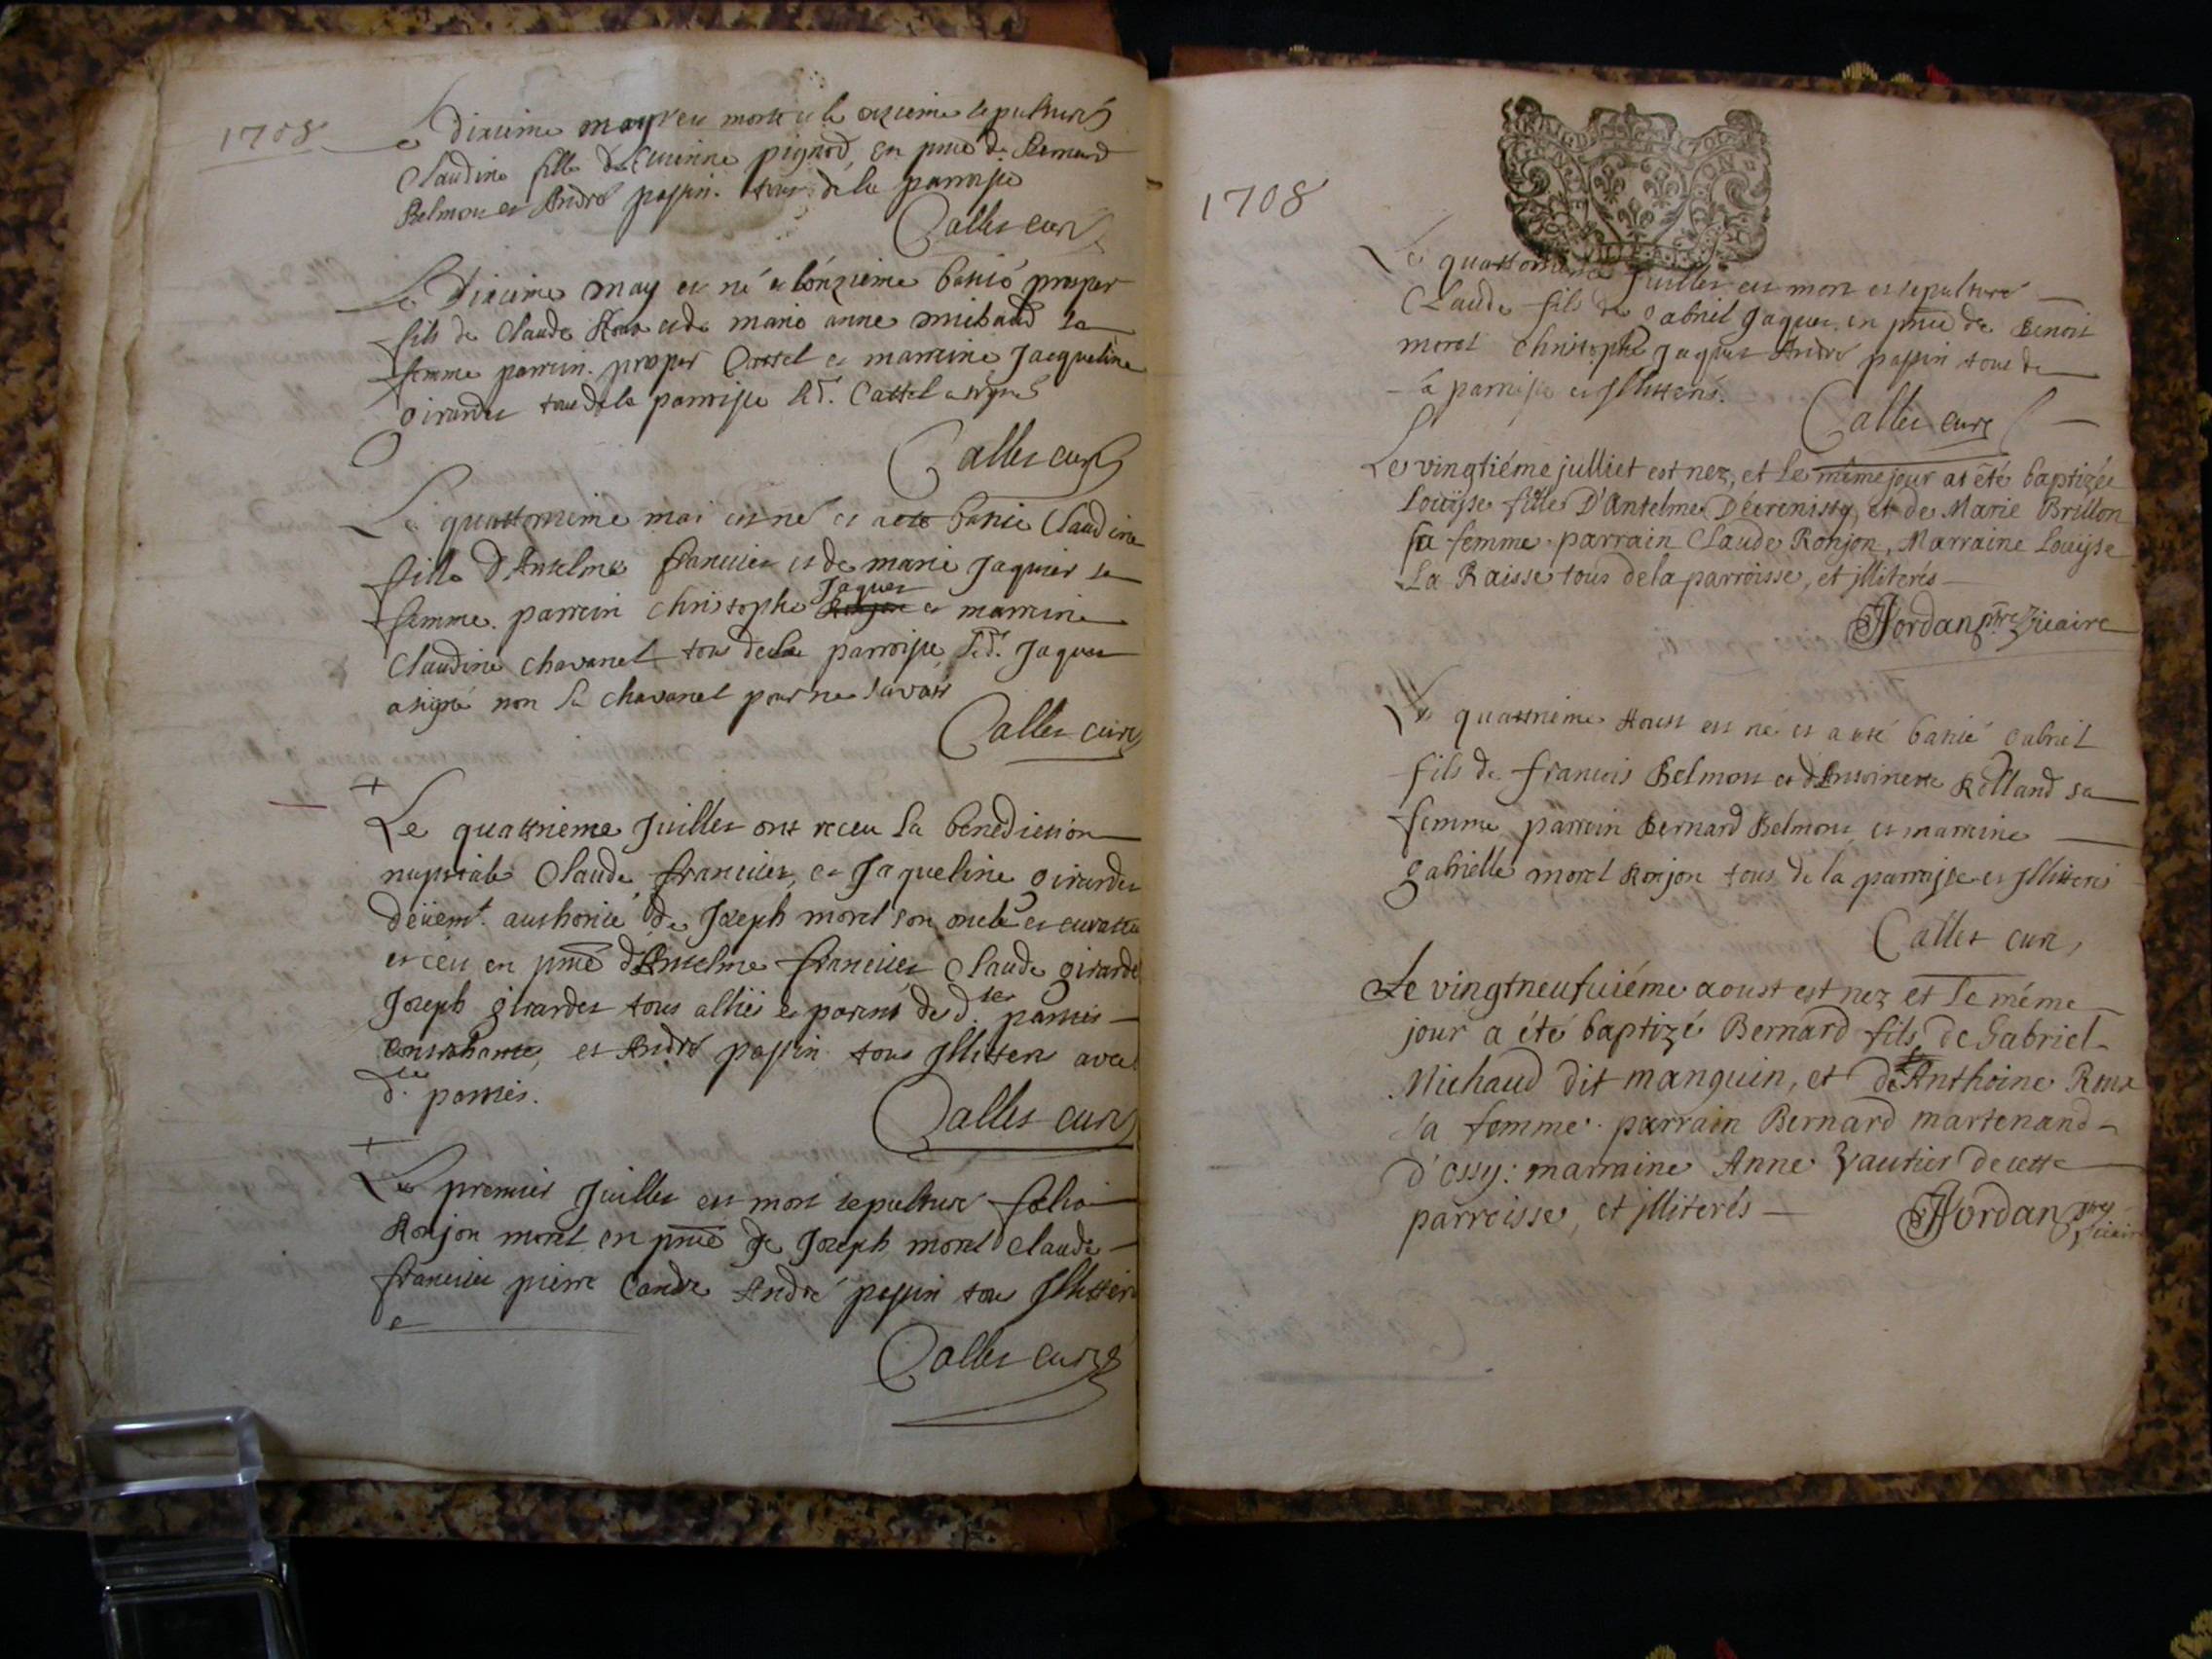 1708
Le dixieme may est morte et le onzieme sepulturé
Claudine fille de Etienne pignod, en pnce de Bernard
Belmon et André passin. tous de la parroisse
Callet curé
Le dixieme may est né et l'onzieme batisé prosper
fils de Claude Roux et de marie anne michaud sa
femme parrein. prosper Castel et marreine Jacqueline
girardet tous de la parroisse led. Castel a signé
Callet curé
Le quattorzieme mai est né et a esté batisé Claudine
fille d'Anselme francillet et de marie Jaquier sa
femme. parrein christophe Jaquet et marreine
Claudine chavanel tous de la parroisse led. Jaquet
a signé non la chavanel pour ne savoir
Callet curé
Le quattrieme Juillet ont receu la benediction
nuptiale Claude francillet, et Jaqueline girardet
deüemt. authorisé de Joseph morel son oncle et curateur
et ceu en pnce d'Anselme francillet Claude girardet
Joseph girardet tous alliés et parens desd. parties
contrahantes, et André passin tous Illitterés avec
d. parties.
Callet curé
Le premier Juillet est mort sepulturé
Ronjon morel en pnce de Joseph morel Claude
francillet pierre Candre André passin tous Illitterés
Callet curé
1708
GEN
Le quattorzieme Juillet est mort et sepulturé
Claude fils de gabriel Jaquet, en pnce de Benoit
morel christophe Jaquet André passin tous de
la parroisse et Illitterés.
Callet curé
Le vingtiéme julliet est nez, et le même jour at été baptizée
Louÿse fille D'Antelme Décrenissy, et de Marie Brillon
sa femme parrain Claude Ronjon, Marraine Louÿse
La Raisse tous de la parroisse, et jlliterés
Jordan ptre Vicaire
Le quattrieme Aoust est né et a esté batisé gabriel
fils de francois Belmont et d'Antoinette Rolland sa
femme parrein Bernard Belmont et marreine
gabrielle morel Ronjon tous de la parroisse et Illitterés
Callet curé
Le vingtneufuiéme aoust est nez et le même
jour a été baptizé Bernard fils de Gabriel
Michaud dit manguin, et de Anthoine Roux
sa femme parrain Bernard martenand
d'ossy: marraine Anne Vautier de cette
parroisse, et jlliterés
Jordan ptre Vicaire